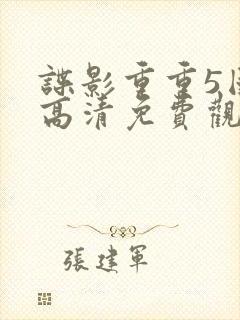 諜影重重5
高清免費觀
張建軍